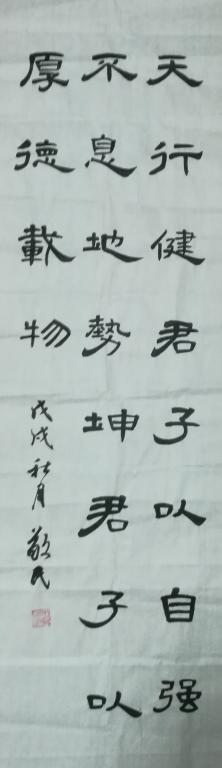 天行健君子以自强
不息地勢坤君子以
厚德載物
戊戌秋月敬民